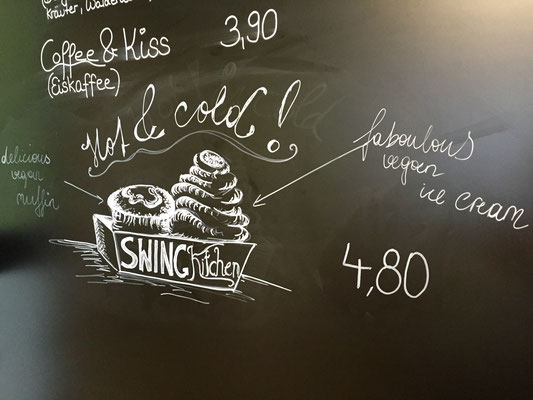 Kräuter,
Coffee & Kiss 3,90
(Eiskaffee)
Hot & cold!
delicious
vegan
muffin
faboulous
vegan
ice cream
SWING Kitchen
4,80